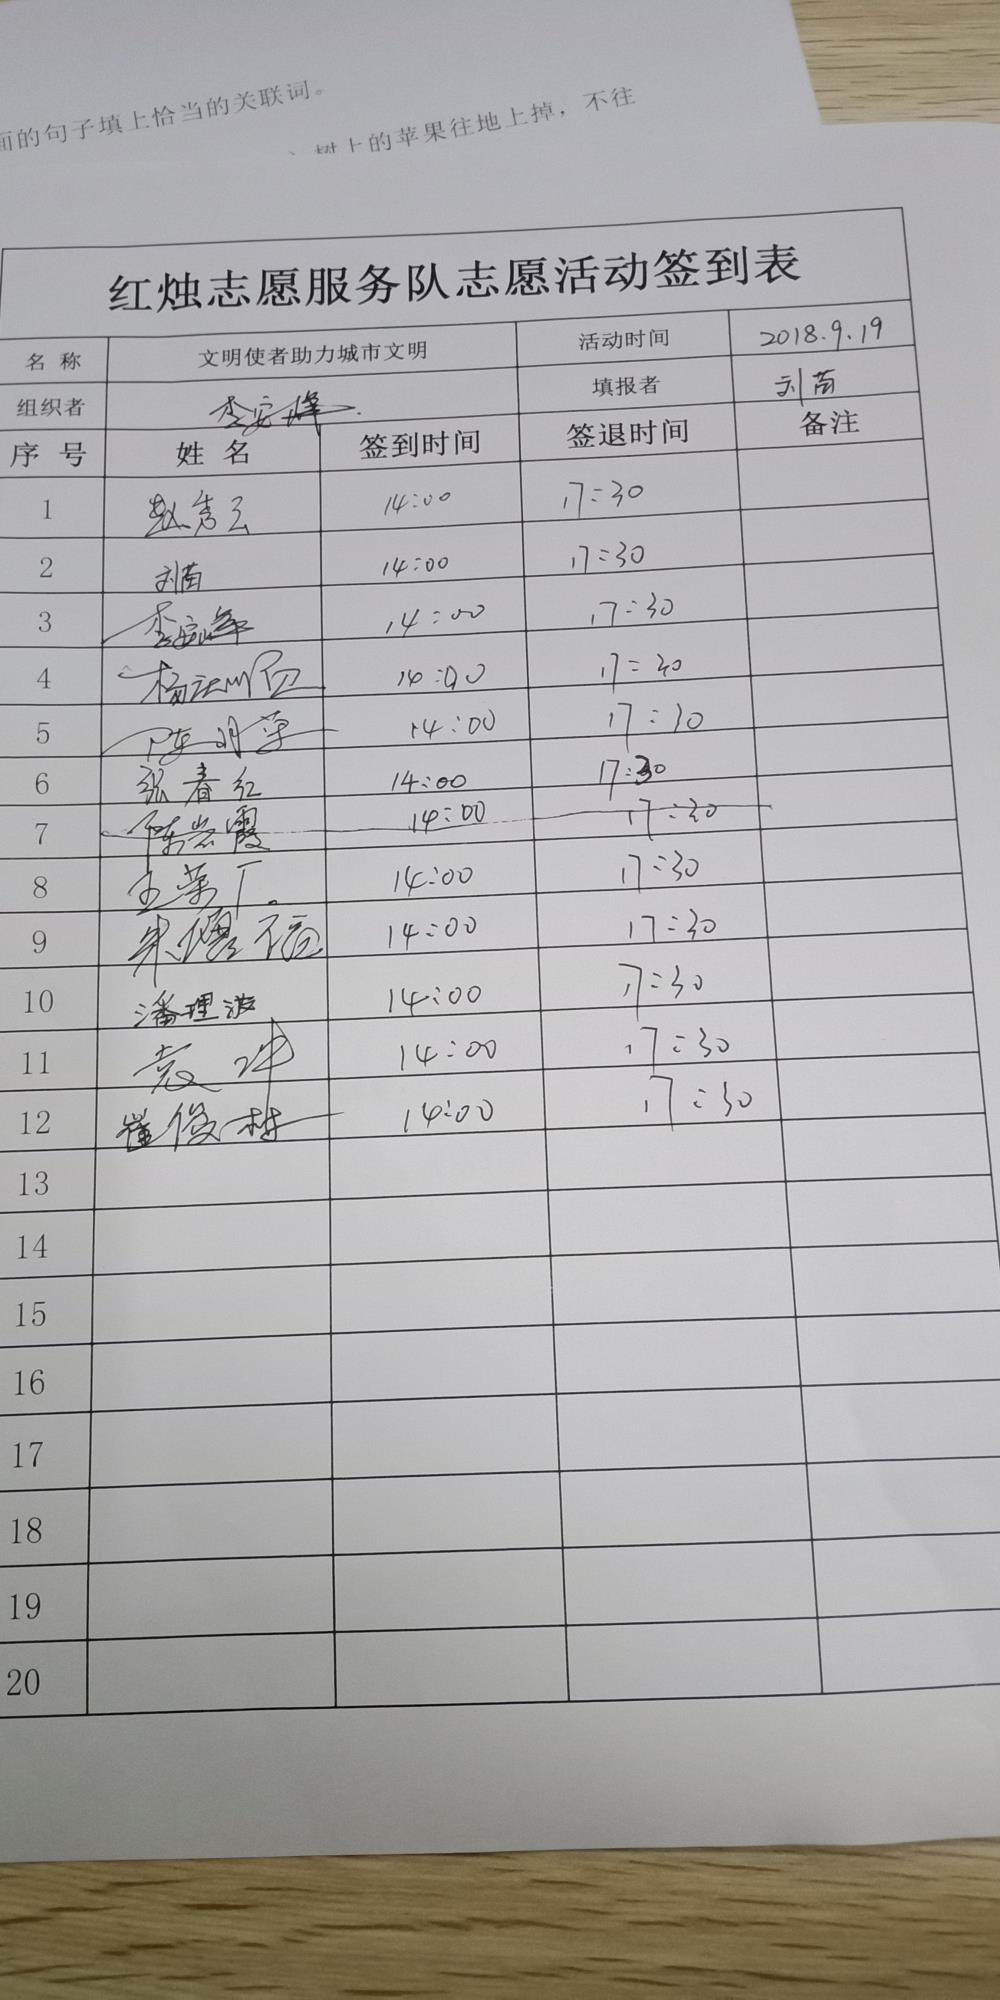 面的句子填上恰当的关联词。
树上的苹果往地上掉，不往
红烛志愿服务队志愿活动签到表
名 称 文明使者助力城市文明 活动时间 2018.9.19
组织者 李安峰 填报者 刘苗
序 号 姓 名 签到时间 签退时间 备注
1 赵秀云 14:00 17:30
2 刘苗 14:00 17:30
3 李安峰 14:00 17:30
4 14:00 17:30
5 14:00 17:30
6 张春红 14:00 17:30
7 陈岩霞 14:00 17:30
8 王荣厂。 14:00 17:30
9 14:00 17:30
10 潘理波 14:00 17:30
11 袁冲 14:00 17:30
12 崔俊栋 14:00 17:30
13
14
15
16
17
18
19
20